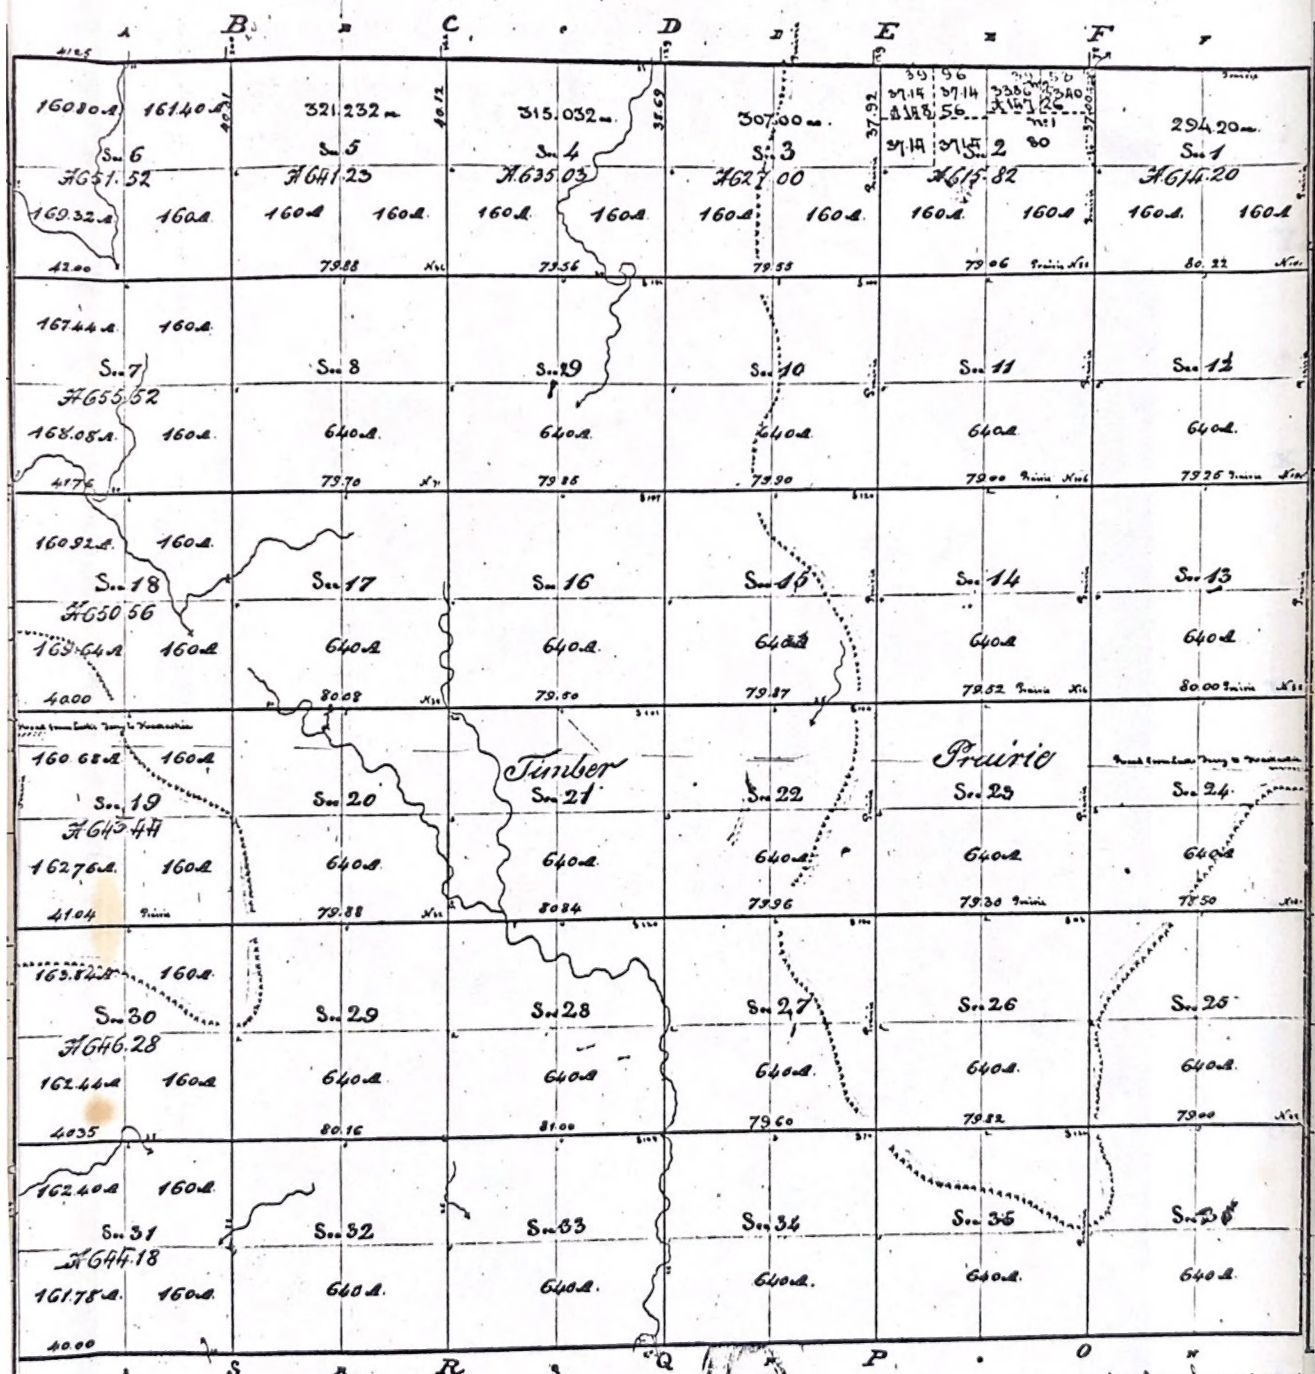 A B B C c D D E E F F
4125
160 80 A 161.40 A 321.232 315.032 307.00 294.20
40.31 40.12 38.69 37.92 37.00
39 96
37.14 37.14
A 148 56 A 147 26
37.14 37.14 80
Sec 6 Sec 5 Sec 4 Sec 3 Sec 2 Sec 1
A 651.52 A 641.23 A 635.03 A 627.00 A 615.82 A 614.20
169.32 A 160 A 160 A 160 A 160 A 160 A 160 A 160 A 160 A 160 A 160 A 160 A
42.00 79.88 79.56 79.55 79.06 Prairie 80.22
167.44 A 160 A
Sec 7 Sec 8 Sec 9 Sec 10 Sec 11 Sec 12
A 655.52
168.08 A 160 A 640 A 640 A 640 A 640 A 640 A
4176 79.70 79.86 79.90 79.00 Prairie 79.25 Prairie
160.92 A 160 A
Sec 18 Sec 17 Sec 16 Sec 15 Sec 14 Sec 13
A 650 56
169.64 A 160 A 640 A 640 A 640 A 640 A 640 A
40.00 80.08 79.50 79.87 79.52 Prairie 80.00 Prairie
160.68 A 160 A Timber Prairie
Sec 19 Sec 20 Sec 21 Sec 22 Sec 23 Sec 24
A 643.44
162.76 A 160 A 640 A 640 A 640 A 640 A 640 A
41.04 Prairie 79.88 8084 79.96 79.30 Prairie 78.50
163.84 A 160 A
Sec 30 Sec 29 Sec 28 Sec 27 Sec 26 Sec 25
A 646.28
162.44 A 160 A 640 A 640 A 640 A 640 A 640 A
4035 80.16 81.00 79.60 79.82 79.00
162.40 A 160 A
Sec 31 Sec 32 Sec 33 Sec 34 Sec 35
A 644.18
161.78 A 160 A 640 A 640 A 640 A 640 A 640 A
40.00
S R Q P O